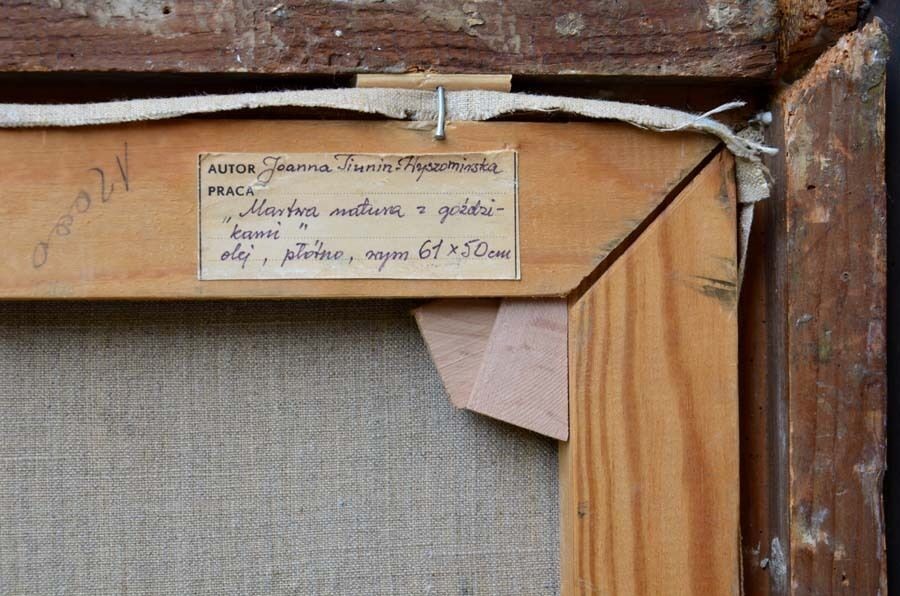 AUTOR Joanna Tiunin-Wyszomirska
PRACA
„Martwa natura z goździ-
kami"
olej, płótno, wym 61 x 50 cm
12000